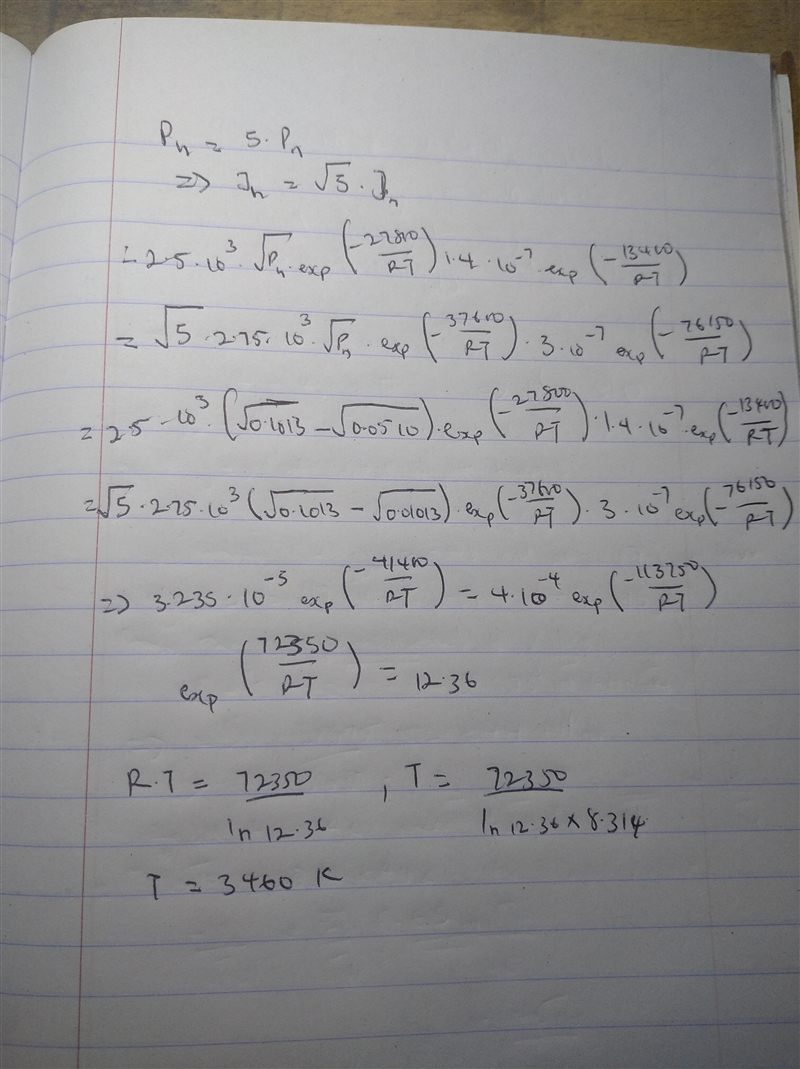 Pₕ = 5 · Pₙ
=> Jₕ = √5 · Jₙ
∴ 2·5 · 10³ · √Pₕ · exp (-27800/RT) 1·4 · 10⁻⁷ · exp (-13400/RT)
= √5 · 2·75 · 10³ · √Pₙ · exp (-37600/RT) · 3 · 10⁻⁷ exp (-76150/RT)
= 2·5 · 10³ · (√0·1013 - √0·0510) · exp (-27800/RT) · 1·4 · 10⁻⁷ · exp (-13400/RT)
= √5 · 2·75 · 10³ (√0·1013 - √0·01013) · exp (-37600/RT) · 3 · 10⁻⁷ exp (-76150/RT)
=> 3·235 · 10⁻⁵ exp (-41400/RT) = 4 · 10⁻⁴ exp (-113750/RT)
exp (72350/RT) = 12·36
R·T = 72350/ln 12·36 , T = 72350/ln 12·36 × 8·314
T = 3460 K